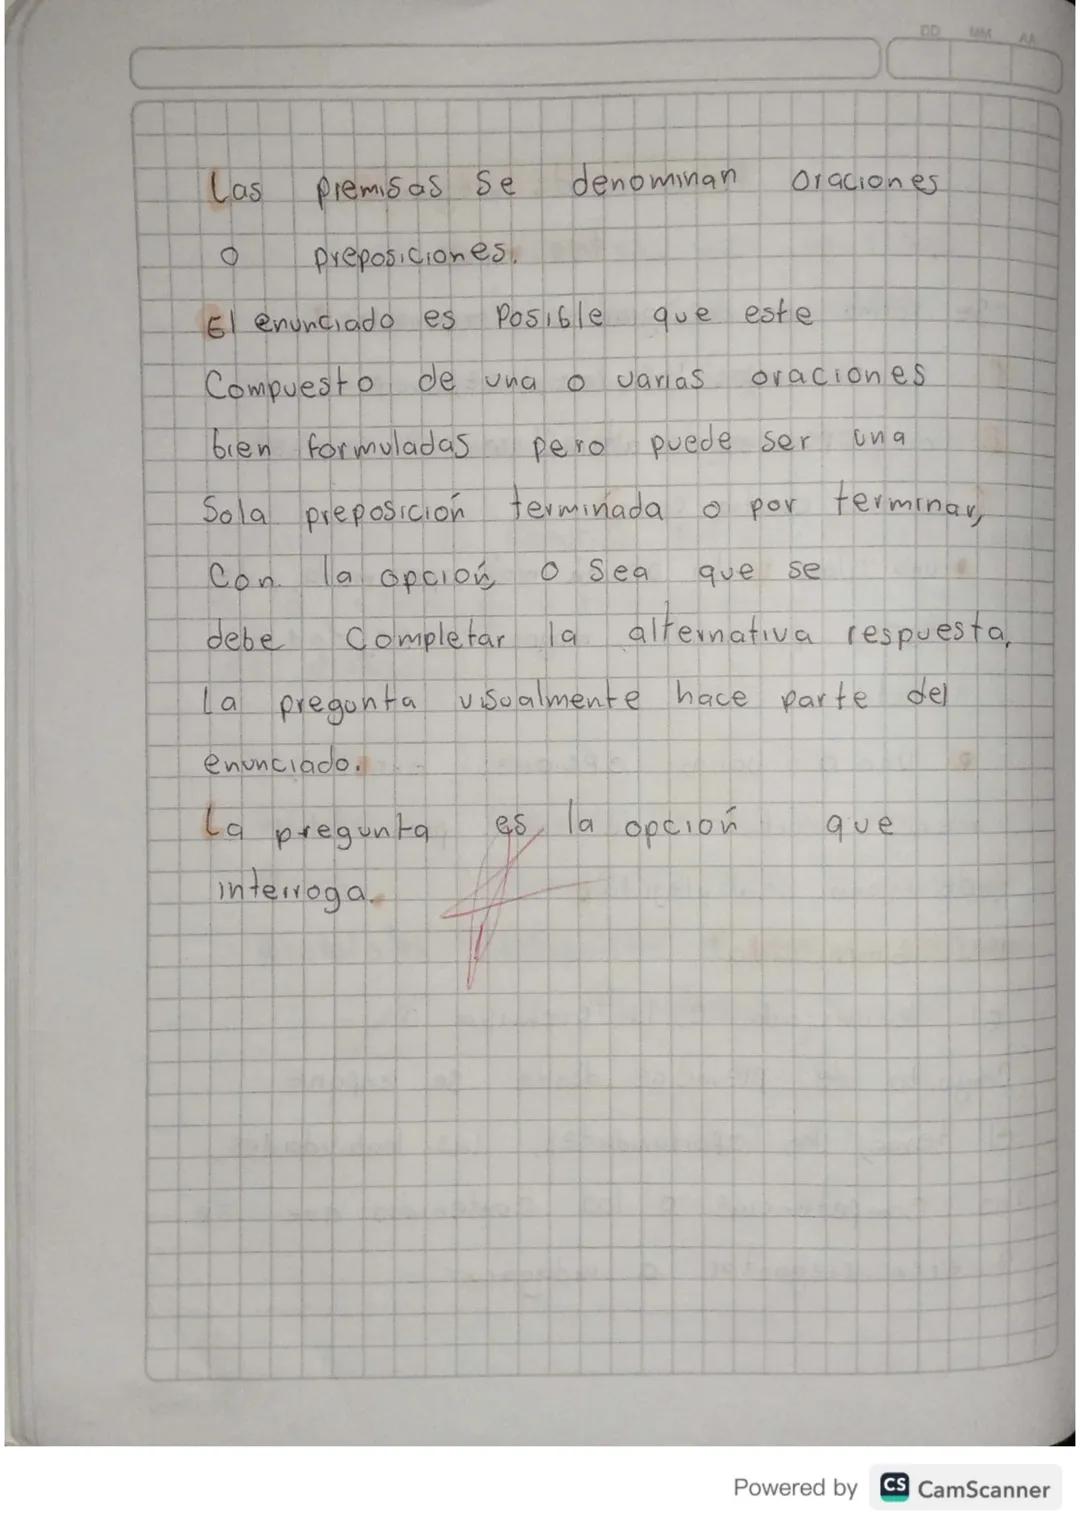 DD MM AA
Las premisas se denominan oraciones
o preposiciones.
El enunciado es Posible que este
Compuesto de una o varias oraciones
bien formuladas pero puede ser una
Sola preposición terminada o por terminar,
Con la opción o sea que se
debe Completar la alternativa respuesta,
La pregunta visualmente hace parte del
enunciado.
La pregunta es la opción que
interroga.
Powered by CS CamScanner